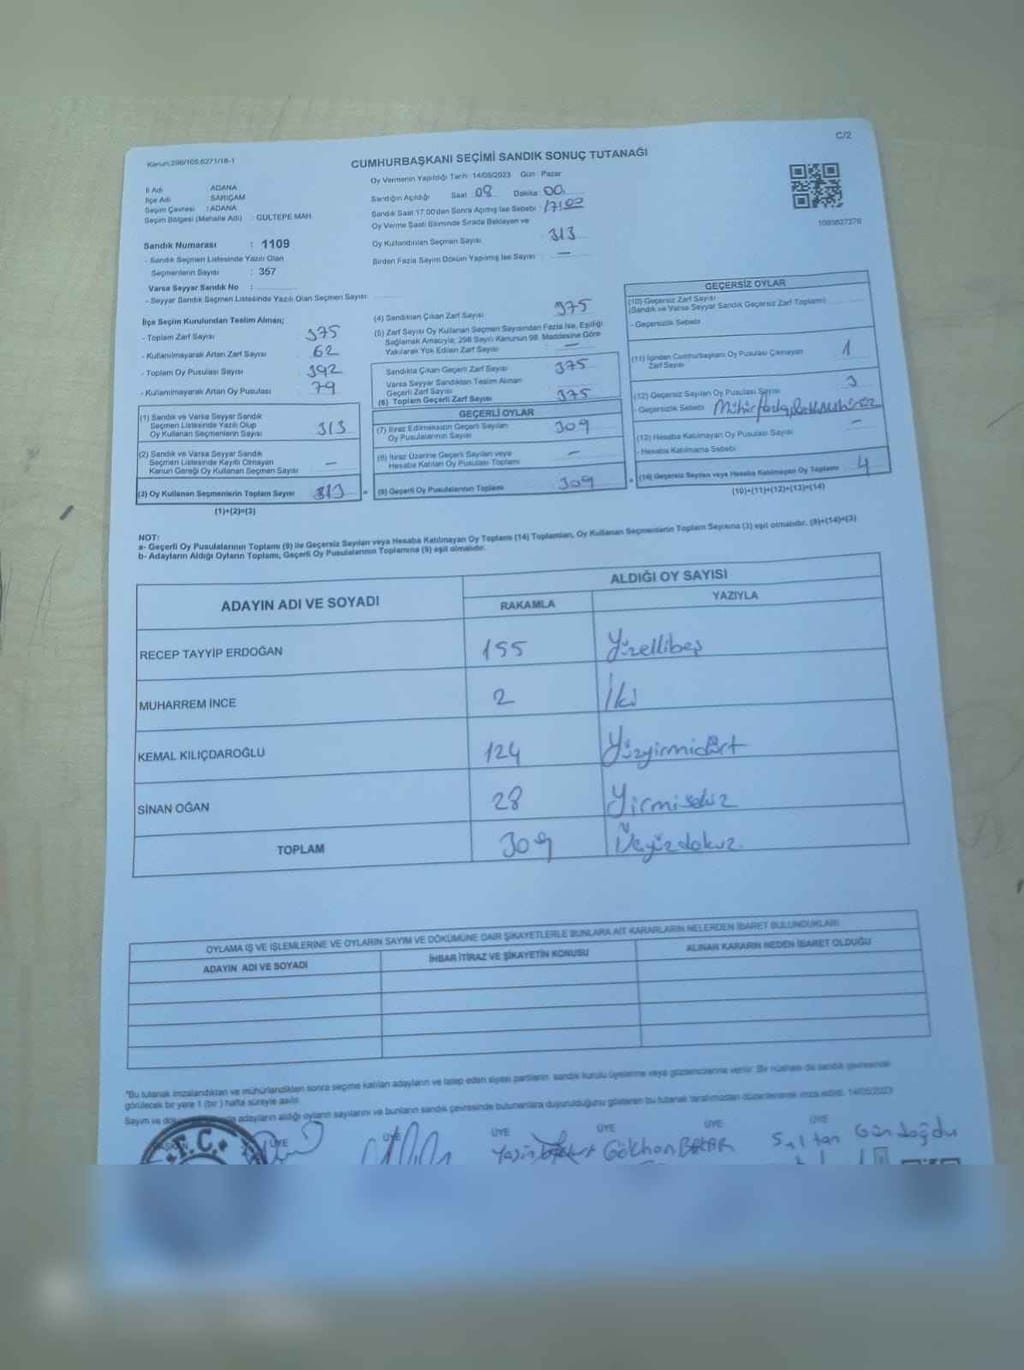 C/2
Kanun:298/105,6271/18-1
CUMHURBAŞKANI SEÇİMİ SANDIK SONUÇ TUTANAĞI
Oy Vermenin Yapıldığı Tarih 14/05/2023 Gün Pazar
İl Adı ADANA
İlçe Adı SARIÇAM
Seçim Çevresi : ADANA
Seçim Bölgesi (Mahalle Adı) : GÜLTEPE MAH.
Sandığın Açıldığı Saat 08 Dakika 00
Sandık Saat 17.00'den Sonra Açılmış İse Sebebi : 17:00
Oy Verme Saati Bitiminde Sırada Bekleyen ve
Oy Kullandırılan Seçmen Sayısı 313
Birden Fazla Sayım Döküm Yapılmış İse Sayısı —
Sandık Numarası : 1109
- Sandık Seçmen Listesinde Yazılı Olan
Seçmenlerin Sayısı : 367
Varsa Seyyar Sandık No :
- Seyyar Sandık Seçmen Listesinde Yazılı Olan Seçmen Sayısı:
İlçe Seçim Kurulundan Teslim Alınan;
- Toplam Zarf Sayısı 375
- Kullanılmayarak Artan Zarf Sayısı 62
- Toplam Oy Pusulası Sayısı 392
- Kullanılmayarak Artan Oy Pusulası 79
(1) Sandık ve Varsa Seyyar Sandık
Seçmen Listesinde Yazılı Olup
Oy Kullanan Seçmenlerin Sayısı 313
(2) Sandık ve Varsa Seyyar Sandık
Seçmen Listesinde Kayıtlı Olmayan
Kanun Gereği Oy Kullanan Seçmen Sayısı —
(3) Oy Kullanan Seçmenlerin Toplam Sayısı 313
(1)+(2)=(3)
(4) Sandıktan Çıkan Zarf Sayısı 375
(5) Zarf Sayısı Oy Kullanan Seçmen Sayısından Fazla İse, Eşitliği
Sağlamak Amacıyla; 298 Sayılı Kanunun 98. Maddesine Göre
Yakılarak Yok Edilen Zarf Sayısı —
Sandıkta Çıkan Geçerli Zarf Sayısı 375
Varsa Seyyar Sandıktan Teslim Alınan
Geçerli Zarf Sayısı
(6) Toplam Geçerli Zarf Sayısı 375
GEÇERLİ OYLAR
(7) İtiraz Edilmeksizin Geçerli Sayılan
Oy Pusulalarının Sayısı 309
(8) İtiraz Üzerine Geçerli Sayılan veya
Hesaba Katılan Oy Pusulası Toplamı —
= (9) Geçerli Oy Pusulalarının Toplamı 309
GEÇERSİZ OYLAR
(10) Geçersiz Zarf Sayısı
(Sandık ve Varsa Seyyar Sandık Geçersiz Zarf Toplamı)
- Geçersizlik Sebebi
(11) İçinden Cumhurbaşkanı Oy Pusulası Çıkmayan
Zarf Sayısı 1
(12) Geçersiz Sayılan Oy Pusulası Sayısı 3
- Geçersizlik Sebebi
(13) Hesaba Katılmayan Oy Pusulası Sayısı —
- Hesaba Katılmama Sebebi
+ (14) Geçersiz Sayılan veya Hesaba Katılmayan Oy Toplamı 4
(10)+(11)+(12)+(13)=(14)
NOT:
a- Geçerli Oy Pusulalarının Toplamı (9) ile Geçersiz Sayılan veya Hesaba Katılmayan Oy Toplamı (14) Toplamları, Oy Kullanan Seçmenlerin Toplam Sayısına (3) eşit olmalıdır. (9)+(14)=(3)
b- Adayların Aldığı Oyların Toplamı, Geçerli Oy Pusulalarının Toplamına (9) eşit olmalıdır.
ADAYIN ADI VE SOYADI
ALDIĞI OY SAYISI
RAKAMLA YAZIYLA
RECEP TAYYİP ERDOĞAN 155 Yüzellibeş
MUHARREM İNCE 2 İki
KEMAL KILIÇDAROĞLU 124 Yüzyirmidört
SİNAN OĞAN 28 Yirmisekiz
TOPLAM 309 Üçyüzdokuz.
OYLAMA İŞ VE İŞLEMLERİNE VE OYLARIN SAYIM VE DÖKÜMÜNE DAİR ŞİKAYETLERLE BUNLARA AİT KARARLARIN NELERDEN İBARET BULUNDUKLARI
ADAYIN ADI VE SOYADI
İHBAR İTİRAZ VE ŞİKAYETİN KONUSU
ALINAN KARARIN NEDEN İBARET OLDUĞU
*Bu tutanak imzalandıktan ve mühürlendikten sonra seçime katılan adayların ve talep eden siyasi partilerin sandık kurulu üyelerine veya gözlemcilerine verilir. Bir nüshası da sandık çevresinde
görülecek bir yere 1 (bir) hafta süreyle asılır.
Sayım ve adayların aldığı oyların sayılarını ve bunların sandık çevresinde bulunanlara duyurulduğunu gösteren bu tutanak tarafımızdan düzenlenerek imza edildi. 14/05/2023
ÜYE ÜYE ÜYE ÜYE ÜYE ÜYE
T.C.
Yasin Gökhan Sultan Gündoğdu